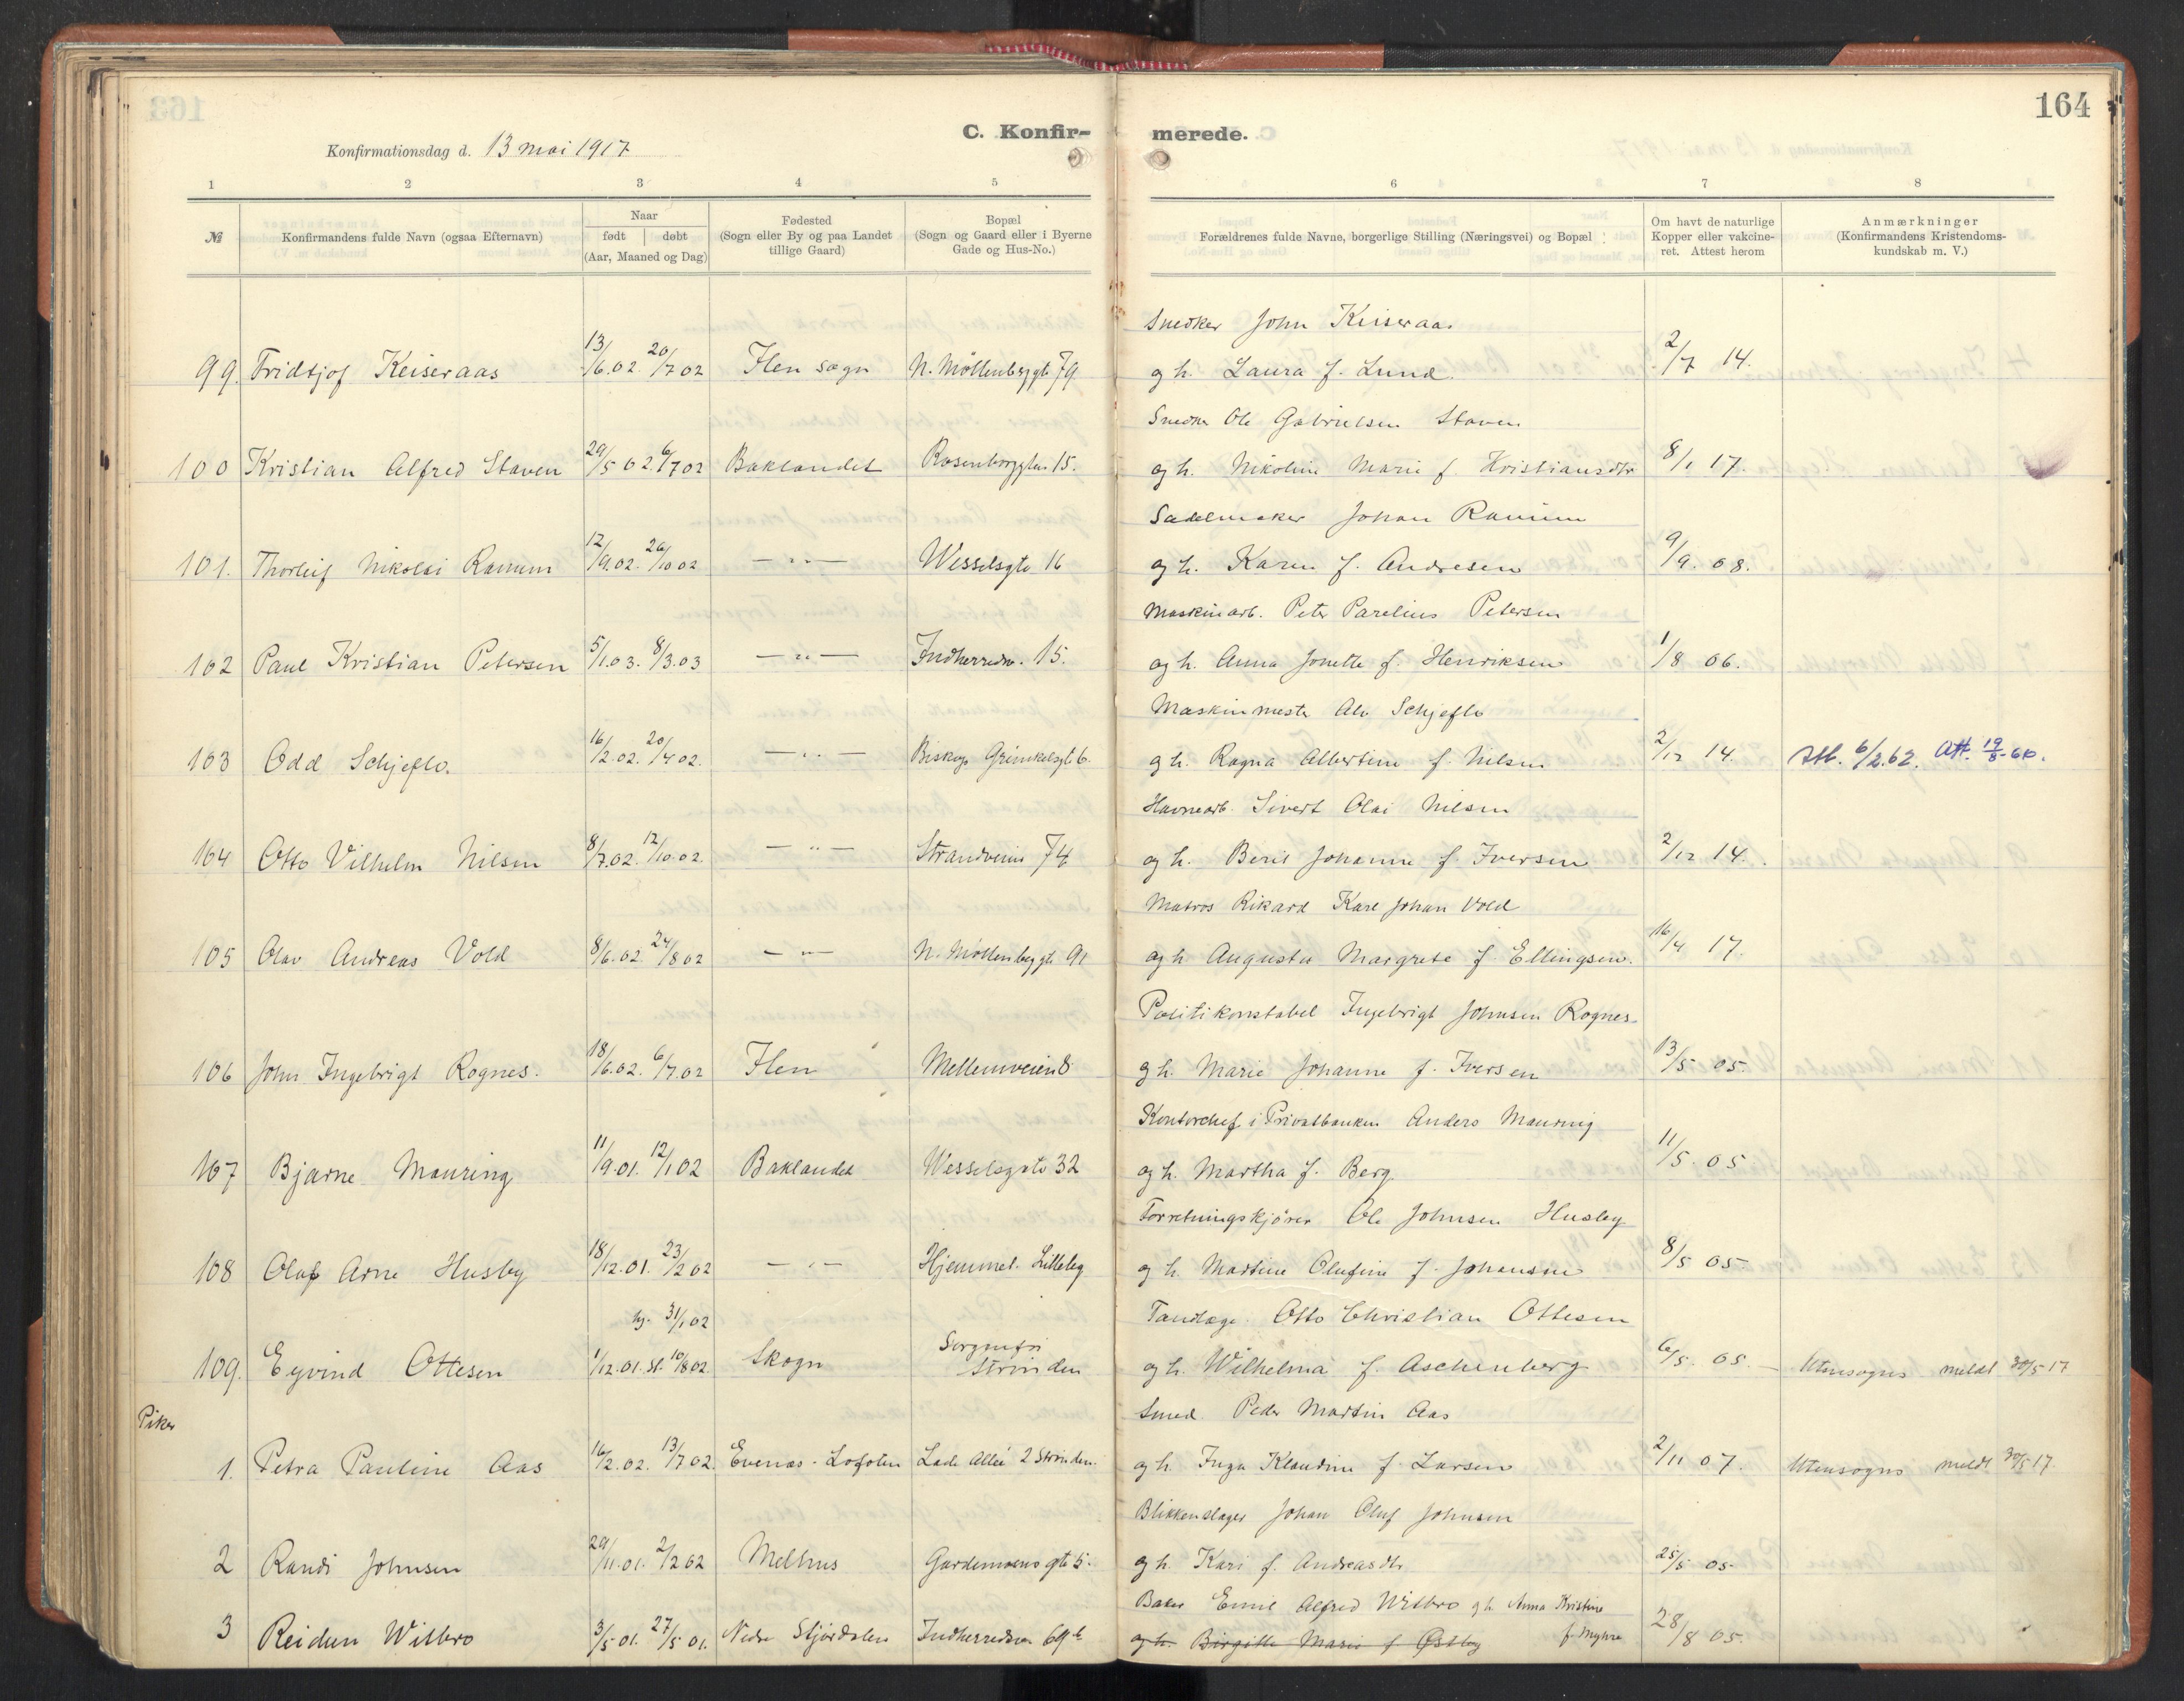 164
C. Konfir-
merede.
Konfirmationsdag d. 13 mai 1917
1 2 3 4 5 6 7 8
№
Konfirmandens fulde Navn (ogsaa Efternavn)
Naar
født | døbt
(Aar, Maaned og Dag)
Fødested
(Sogn eller By og paa Landet
tillige Gaard)
Bopæl
(Sogn og Gaard eller i Byerne
Gade og Hus-No.)
Forældrenes fulde Navne, borgerlige Stilling (Næringsvei) og Bopæl
Om havt de naturlige
Kopper eller vakcine-
ret. Attest herom
Anmærkninger
(Konfirmandens Kristendoms-
kundskab m. V.)
Snedker John Keiseraas
99. Fridtjof Keiseraas 13/6.02. 20/7 02 Ilen sogn N. Möllenberggt 79 og h. Laura f. Lund. 2/7 14.
Snedker Ole Gabrielsen Staven
100 Kristian Alfred Staven 29/5 02. 6/7 02 Baklandet Rosenborggten 15. og h. Nikoline Marie f. Kristiansdtr 8/1 17.
Sadelmaker Johan Ranum
101. Thorleif Nikolai Ranum 12/9.02. 26/10 02 — " — Wesselsgte 16 og h. Karen f. Andresen 9/9. 08.
Maskinarb. Peter Parelius Petersen
102 Paul Kristian Petersen 5/1.03. 8/3.03 — " — Indherredsv. 15. og h. Anna Jonette f. Henriksen 1/8 06.
Maskinmester Alv Schjeflo
103 Odd Schjeflo. 16/2.02. 20/4 02. — " — Biskop Grimkelsgt 6. og h. Ragna Albertine f. Nilsen 2/12 14. Att. 6/2.62. Att. 19/8-60.
Havnearb. Sivert Olai Nilsen
104 Otto Vilhelm Nilsen 8/7.02. 12/10.02. — " — Strandveien 74 og h. Beril Johanne f. Iversen 2/12 14.
Matros Rikard Karl Johan Vold
105 Olav Andreas Vold 8/6.02 24/8 02 — " — N. Möllenberggt 91 og h. Augusta Margrete f. Ellingsen. 16/4 17.
Politikonstabel Ingebrigt Johnsen Rognes
106 John Ingebrigt Rognes. 18/6.02. 6/7.02 Ilen Mellemveien 8 og h. Marie Johanne f. Iversen 13/5 05.
Kontorchef i Privatbanken Anders Mauring
107 Bjarne Mauring 11/9.01. 12/1 02 Baklandet Wesselsgate 32 og h. Martha f. Berg 11/5. 05
Forretningskjörer Ole Johnsen Husby
108 Olaf Arne Husby 18/12.01. 23/2 02 — " — Hjemmet. Lilleby og h. Martine Olufine f. Johansen 8/5 05.
hj. 31/1 02
Tandlæge Otto Christian Ottesen
109. Eyvind Ottesen 1/12.01. st. 10/8 02. Skogn Sorgenfri Strinden og h. Wilhelma f. Aschenberg 6/5. 05. Utensogns meldt 30/5 17
Piker
Smed Peder Martin Aas
1. Petra Pauline Aas 16/2.02. 13/7 02. Evenæs - Lofoten Lade Allé 2 Strinden. og h. Inga Klaudine f. Larsen 2/11 07. Utensogns meldt 30/5 17.
Blikkenslager Johan Oluf Johnsen
2 Randi Johnsen 29/11.01. 2/2 02 Melhus Gardemoens gt 5. og h. Kari f. Andreasdtr. 25/5 05
Baker Emil Alfred Wilbro og h. Anna Kristine
f. Myhre
3 Reidun Wilbro 3/5 01. 27/5 01. Nedre Stjørdalen Indherredsv. 69 b og h. Birgitte Marie f Østby 28/8 05.